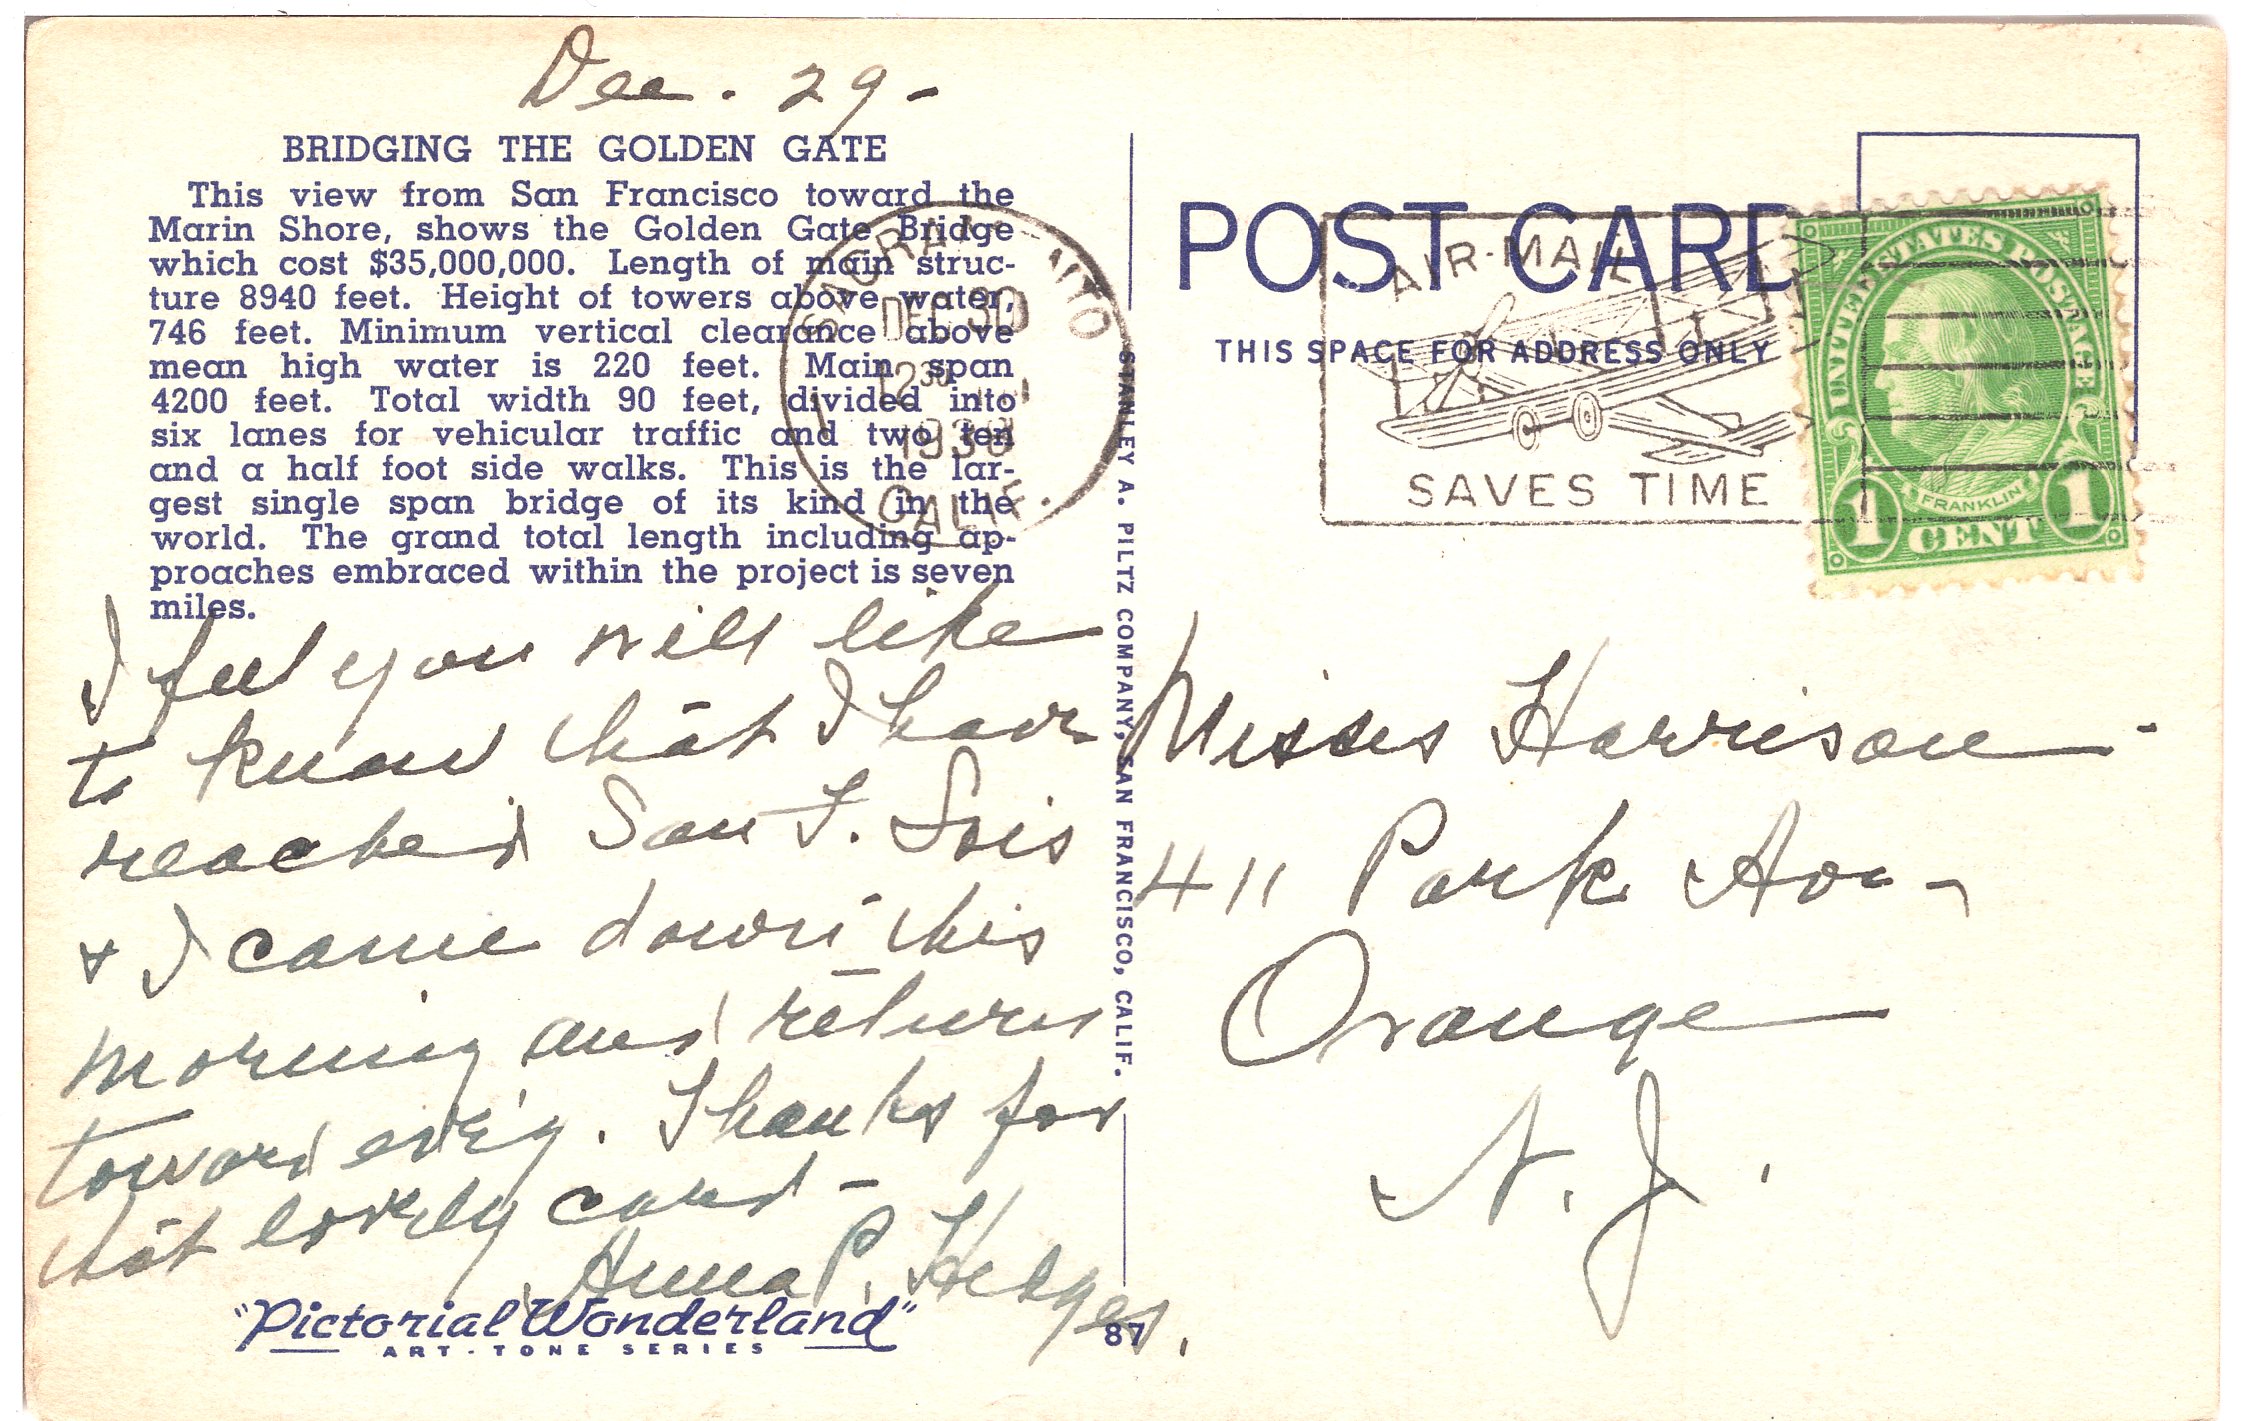 Dec. 29-
BRIDGING THE GOLDEN GATE
This view from San Francisco toward the
Marin Shore, shows the Golden Gate Bridge
which cost $35,000,000. Length of main struc-
ture 8940 feet. Height of towers above water,
746 feet. Minimum vertical clearance above
mean high water is 220 feet. Main span
4200 feet. Total width 90 feet, divided into
six lanes for vehicular traffic and two ten
and a half foot side walks. This is the lar-
gest single span bridge of its kind in the
world. The grand total length including ap-
proaches embraced within the project is seven
miles.
I feel you will like
to know that I have
reached San F. Lois
+ I came down this
morning and return
toward ev'g. Thanks for
that lovely card-
Anna P. Hedges.
"Pictorial Wonderland"
ART-TONE SERIES
87
SACRAMENTO
DEC 30
12 30
193
CALIF.
STANLEY A. PILTZ COMPANY, SAN FRANCISCO, CALIF.
POST CARD
THIS SPACE FOR ADDRESS ONLY
AIR-MAIL
SAVES TIME
UNITED STATES POSTAGE
FRANKLIN
1 CENT 1
Misses Harrison-
411 Park Av-
Orange
N. J.